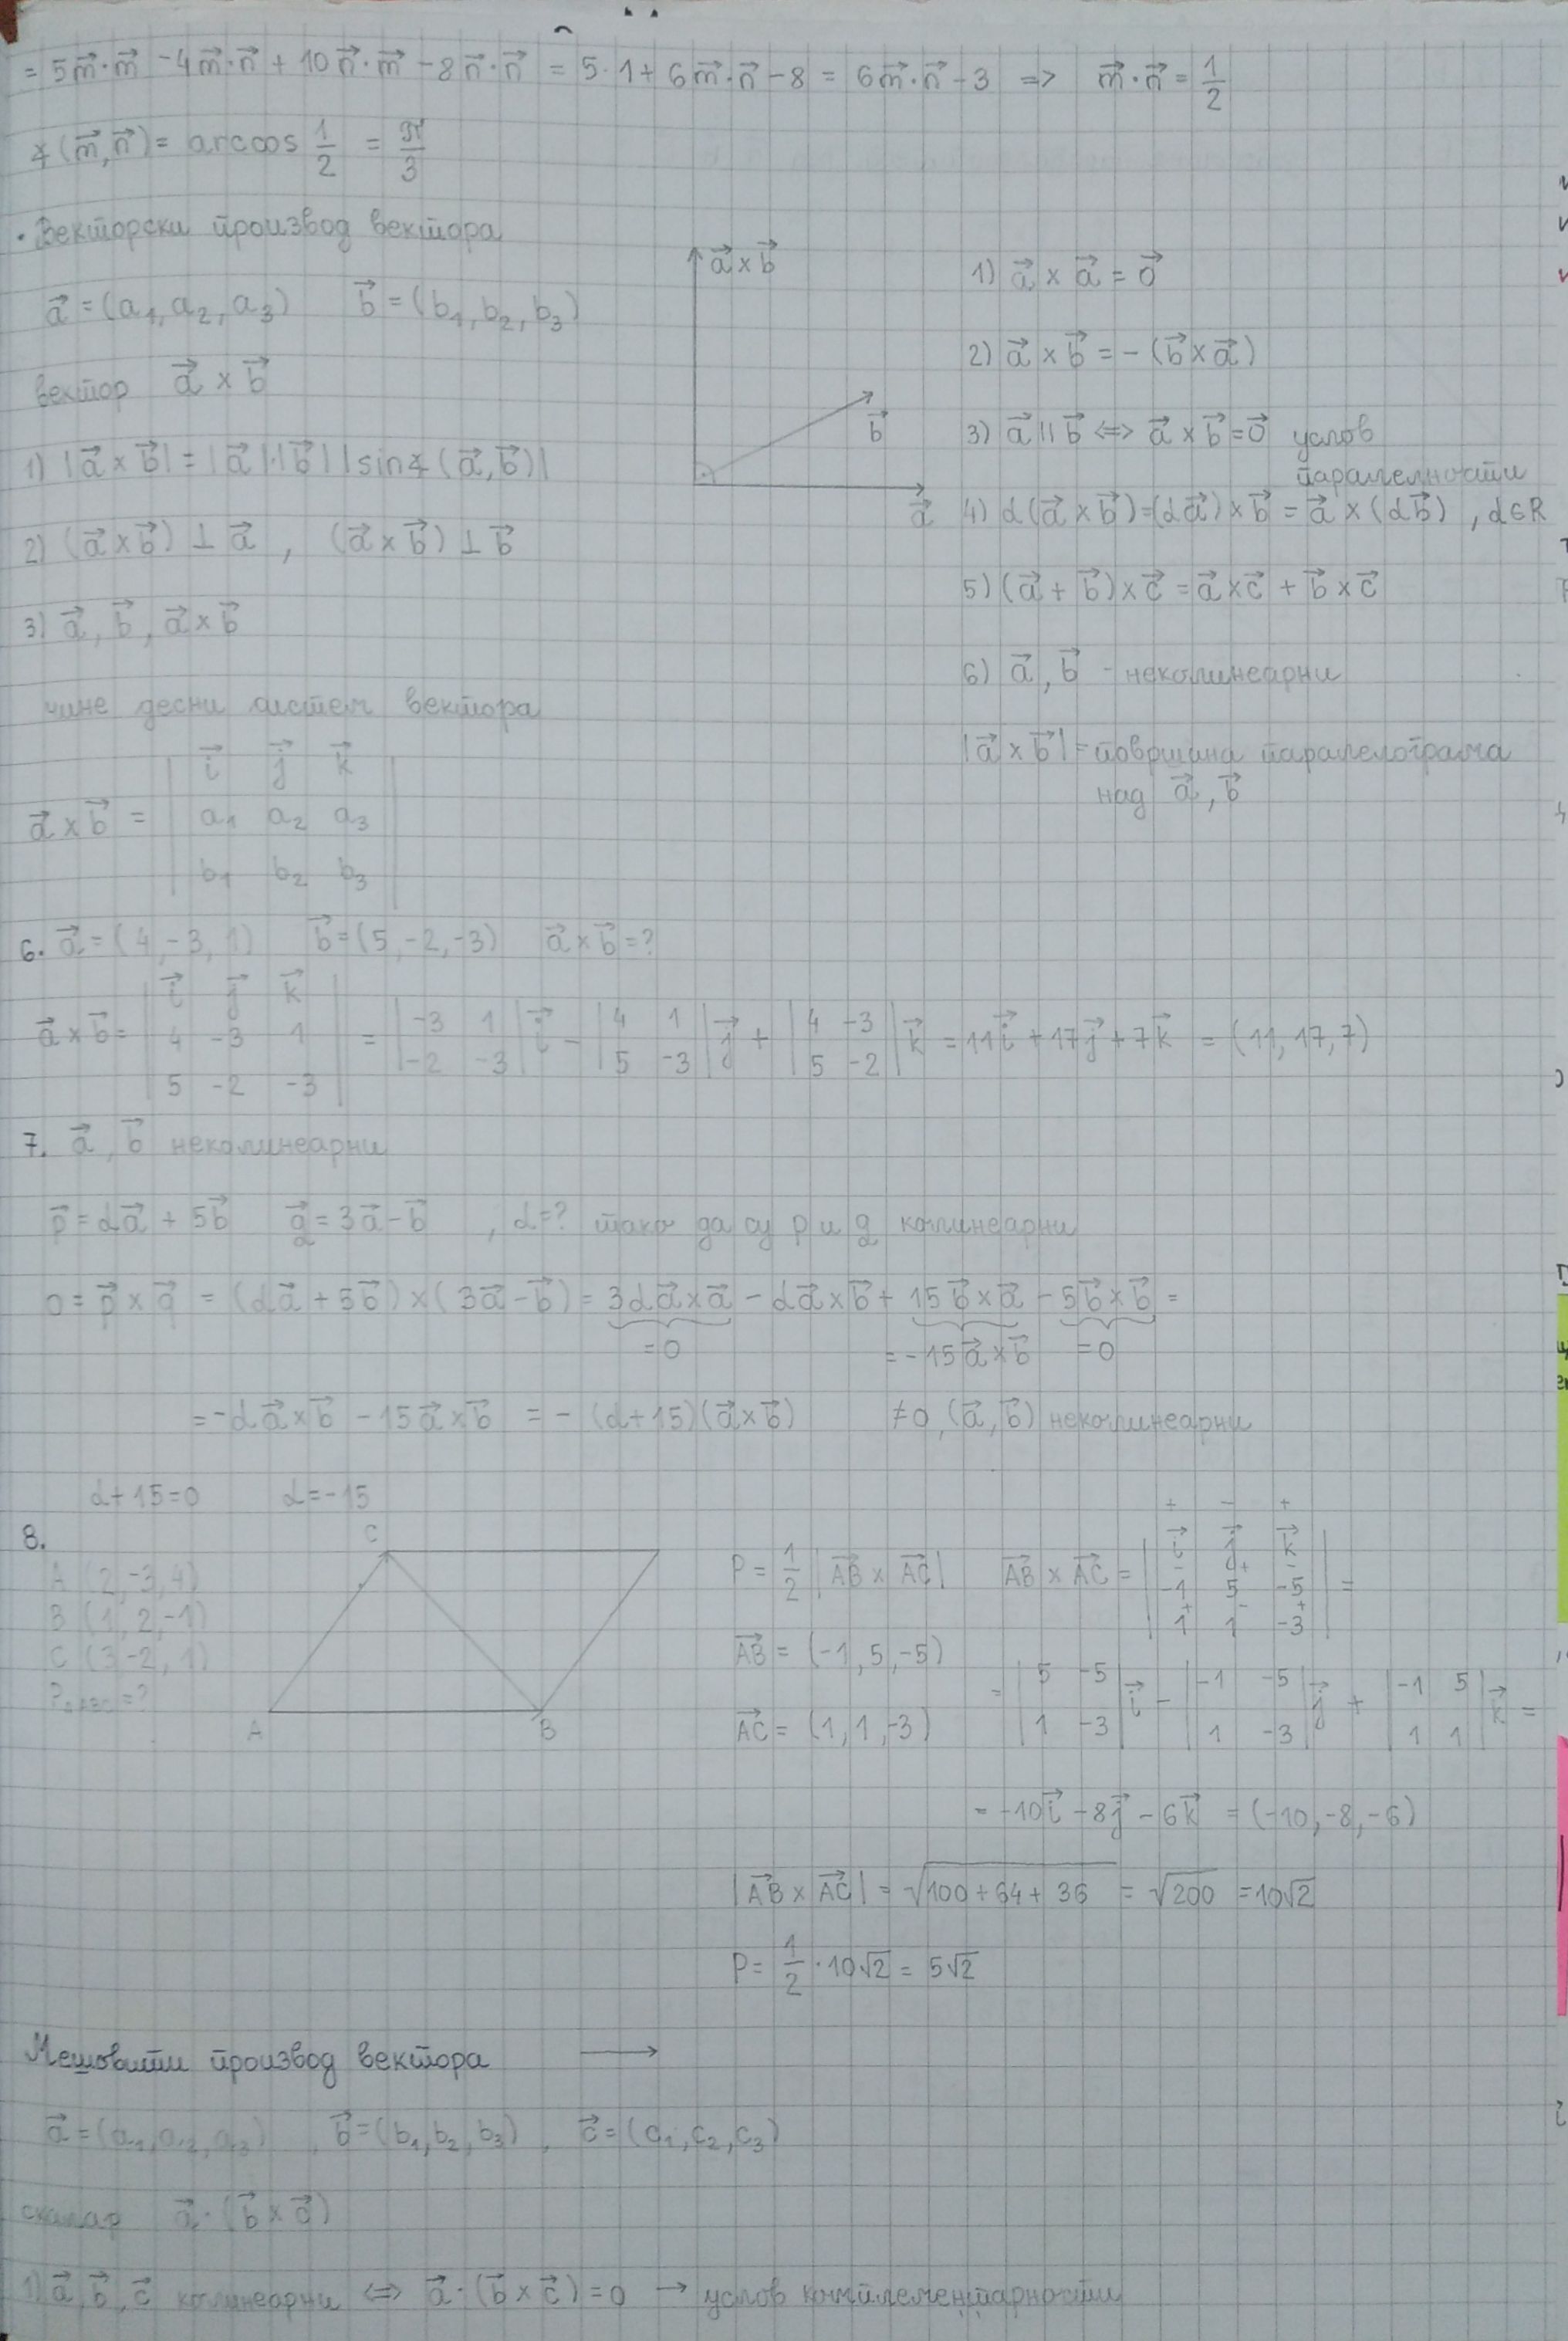 = 5m⃗·m⃗ - 4m⃗·n⃗ + 10n⃗·m⃗ - 8n⃗·n⃗ = 5·1 + 6m⃗·n⃗ - 8 = 6m⃗·n⃗ - 3 => m⃗·n⃗ = 1/2
∡(m⃗,n⃗) = arccos 1/2 = π/3
· Векторски производ вектора
a⃗ = (a₁, a₂, a₃) b⃗ = (b₁, b₂, b₃)
вектор a⃗ × b⃗
1) |a⃗ × b⃗| = |a⃗|·|b⃗| |sin∡(a⃗, b⃗)|
2) (a⃗ × b⃗) ⊥ a⃗ , (a⃗ × b⃗) ⊥ b⃗
3) a⃗, b⃗, a⃗ × b⃗
чине десни систем вектора
a⃗ × b⃗
b⃗
a⃗
1) a⃗ × a⃗ = 0⃗
2) a⃗ × b⃗ = -(b⃗ × a⃗)
3) a⃗ || b⃗ <=> a⃗ × b⃗ = 0⃗ услов
паралелности
4) α(a⃗ × b⃗) = (αa⃗) × b⃗ = a⃗ × (αb⃗) , α∈R
5) (a⃗ + b⃗) × c⃗ = a⃗ × c⃗ + b⃗ × c⃗
6) a⃗, b⃗ - неколинеарни
|a⃗ × b⃗| = површина паралелограма
над a⃗, b⃗
i⃗ j⃗ k⃗
a⃗ × b⃗ = | a₁ a₂ a₃ |
b₁ b₂ b₃
6. a⃗ = (4, -3, 1) b⃗ = (5, -2, -3) a⃗ × b⃗ = ?
i⃗ j⃗ k⃗
a⃗ × b⃗ = | 4 -3 1 | = | -3 1 | i⃗ - | 4 1 | j⃗ + | 4 -3 | k⃗ = 11i⃗ + 17j⃗ + 7k⃗ = (11, 17, 7)
5 -2 -3 | -2 -3 | | 5 -3 | | 5 -2 |
7. a⃗, b⃗ неколинеарни
p⃗ = αa⃗ + 5b⃗ q⃗ = 3a⃗ - b⃗ , α=? тако да су p и q колинеарни
0 = p⃗ × q⃗ = (αa⃗ + 5b⃗) × (3a⃗ - b⃗) = 3αa⃗×a⃗ - αa⃗×b⃗ + 15b⃗×a⃗ - 5b⃗×b⃗ =
=0 = -15a⃗×b⃗ =0
= -αa⃗×b⃗ - 15a⃗×b⃗ = -(α+15)(a⃗×b⃗) ≠0, (a⃗,b⃗) неколинеарни
α+15=0 α=-15
8.
A (2,-3,4)
B (1, 2,-1)
C (3,-2, 1)
P△ABC=?
C
A B
P = 1/2 |AB⃗ × AC⃗|
+ - +
i⃗ j⃗ k⃗
- + -
AB⃗ × AC⃗ = | -1 5 -5 | =
+ - +
1 1 -3
AB⃗ = (-1, 5, -5)
AC⃗ = (1, 1, -3)
= | 5 -5 | i⃗ - | -1 -5 | j⃗ + | -1 5 | k⃗ =
| 1 -3 | | 1 -3 | | 1 1 |
= -10i⃗ - 8j⃗ - 6k⃗ = (-10, -8, -6)
|AB⃗ × AC⃗| = √(100+64+36) = √200 = 10√2
P = 1/2 · 10√2 = 5√2
Мешовити производ вектора →
a⃗ = (a₁, a₂, a₃) , b⃗ = (b₁, b₂, b₃) , c⃗ = (c₁, c₂, c₃)
скалар a⃗ · (b⃗ × c⃗)
1) a⃗, b⃗, c⃗ колинеарни <=> a⃗ · (b⃗ × c⃗) = 0 → услов комплементарности